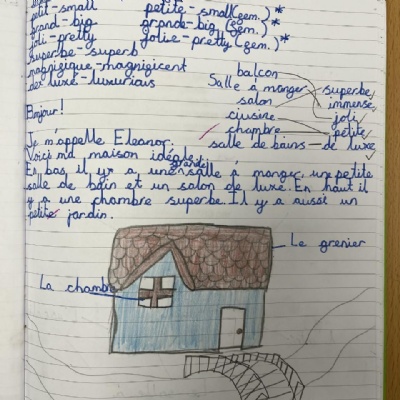 petit-small petite-small(gem.)*
grand-big grande-big (gem.)*
joli-pretty jolie-pretty(gem.)*
superbe-superb
magnigique-magnigicent
de luxé-luxurious
balcon
Salle à manger superbe
salon immense
cuisine joli
chambre petite
salle de bains de luxe
Bonjour!
Je m'appelle Eleanor.
Voici ma maison idéale.
grande
En bas, il y a une salle à manger, une petite
salle de bain et un salon de luxe. En haut il
y a une chambre superbe. Il y a aussi un
petite jardin.
Le grenier
La chambre